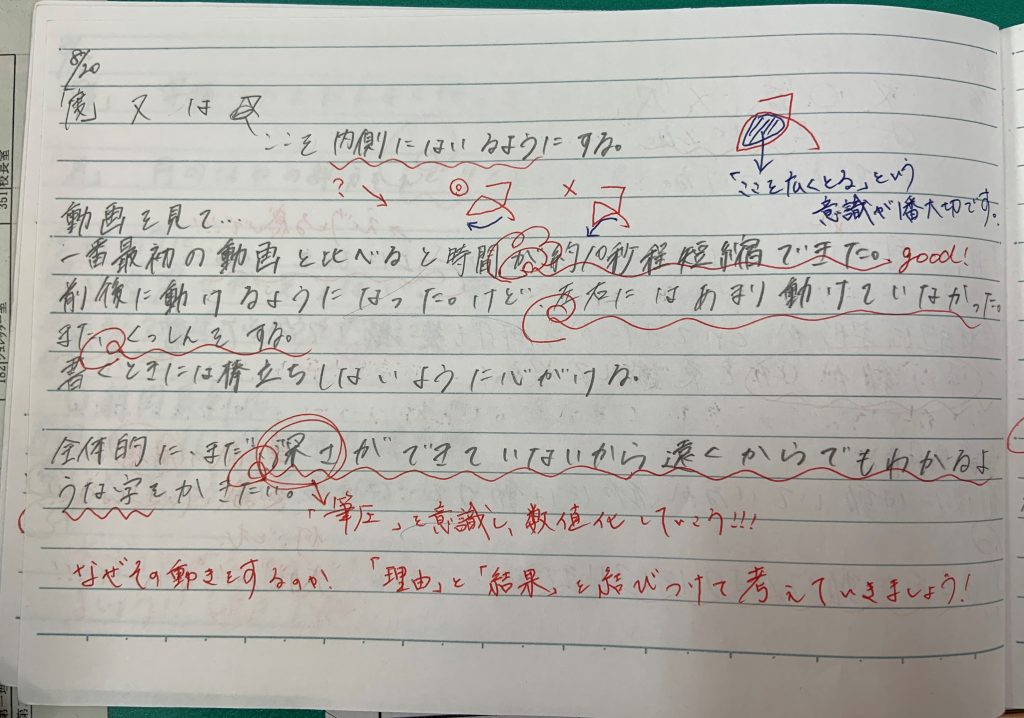 8/20
又は
ここを内側にはいるようにする。
?
◎
×
「ここを広くとる」という
意識が1番大切です。
動画を見て…
一番最初の動画と比べると時間が約10秒程短縮できた。good!
前後に動けるようになった。けど、左右にはあまり動けていなかった。
また、くっしんをする。
書くときには棒立ちしないように心がける。
全体的に、まだ深さができていないから遠くからでもわかるよ
うな字をかきたい。
「筆圧」を意識し、数値化していこう!!!
なぜその動きをするのか! 「理由」と「結果」を結びつけて考えていきましょう!
351 校長室
182